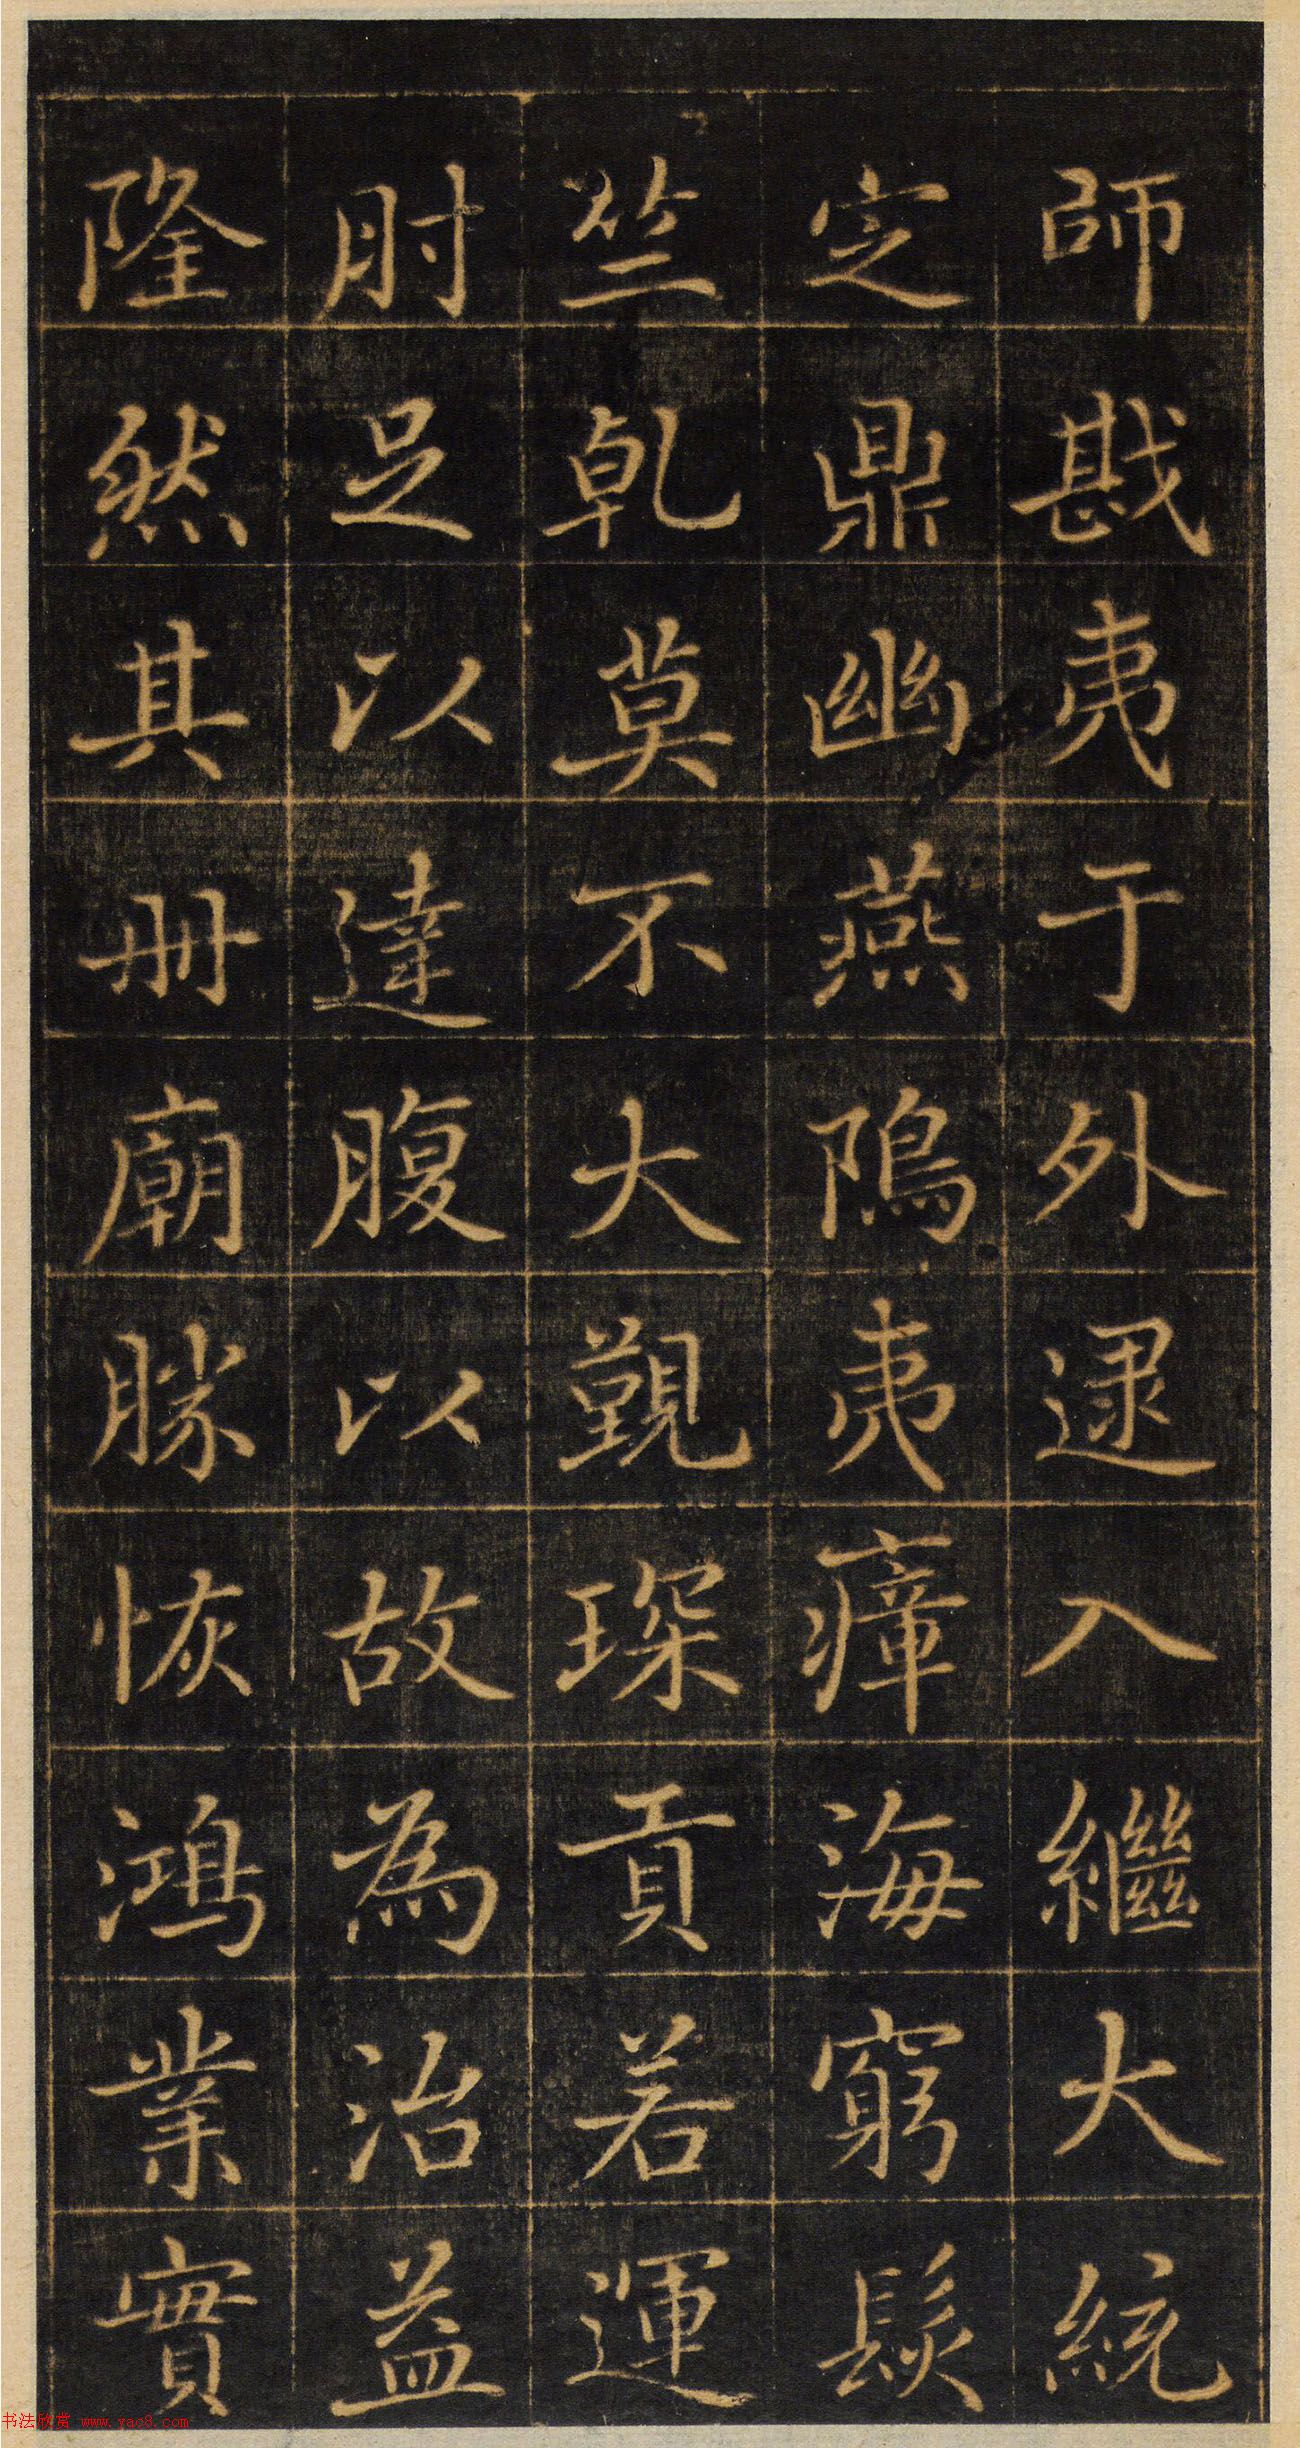 師戡夷于外逮入繼大統
定鼎幽燕隖夷瘴海窮髮
竺乾莫不大覲琛貢若運
肘足以達腹以故為治益
隆然其册廟勝恢鴻業實
书法欣赏 www.yac8.com